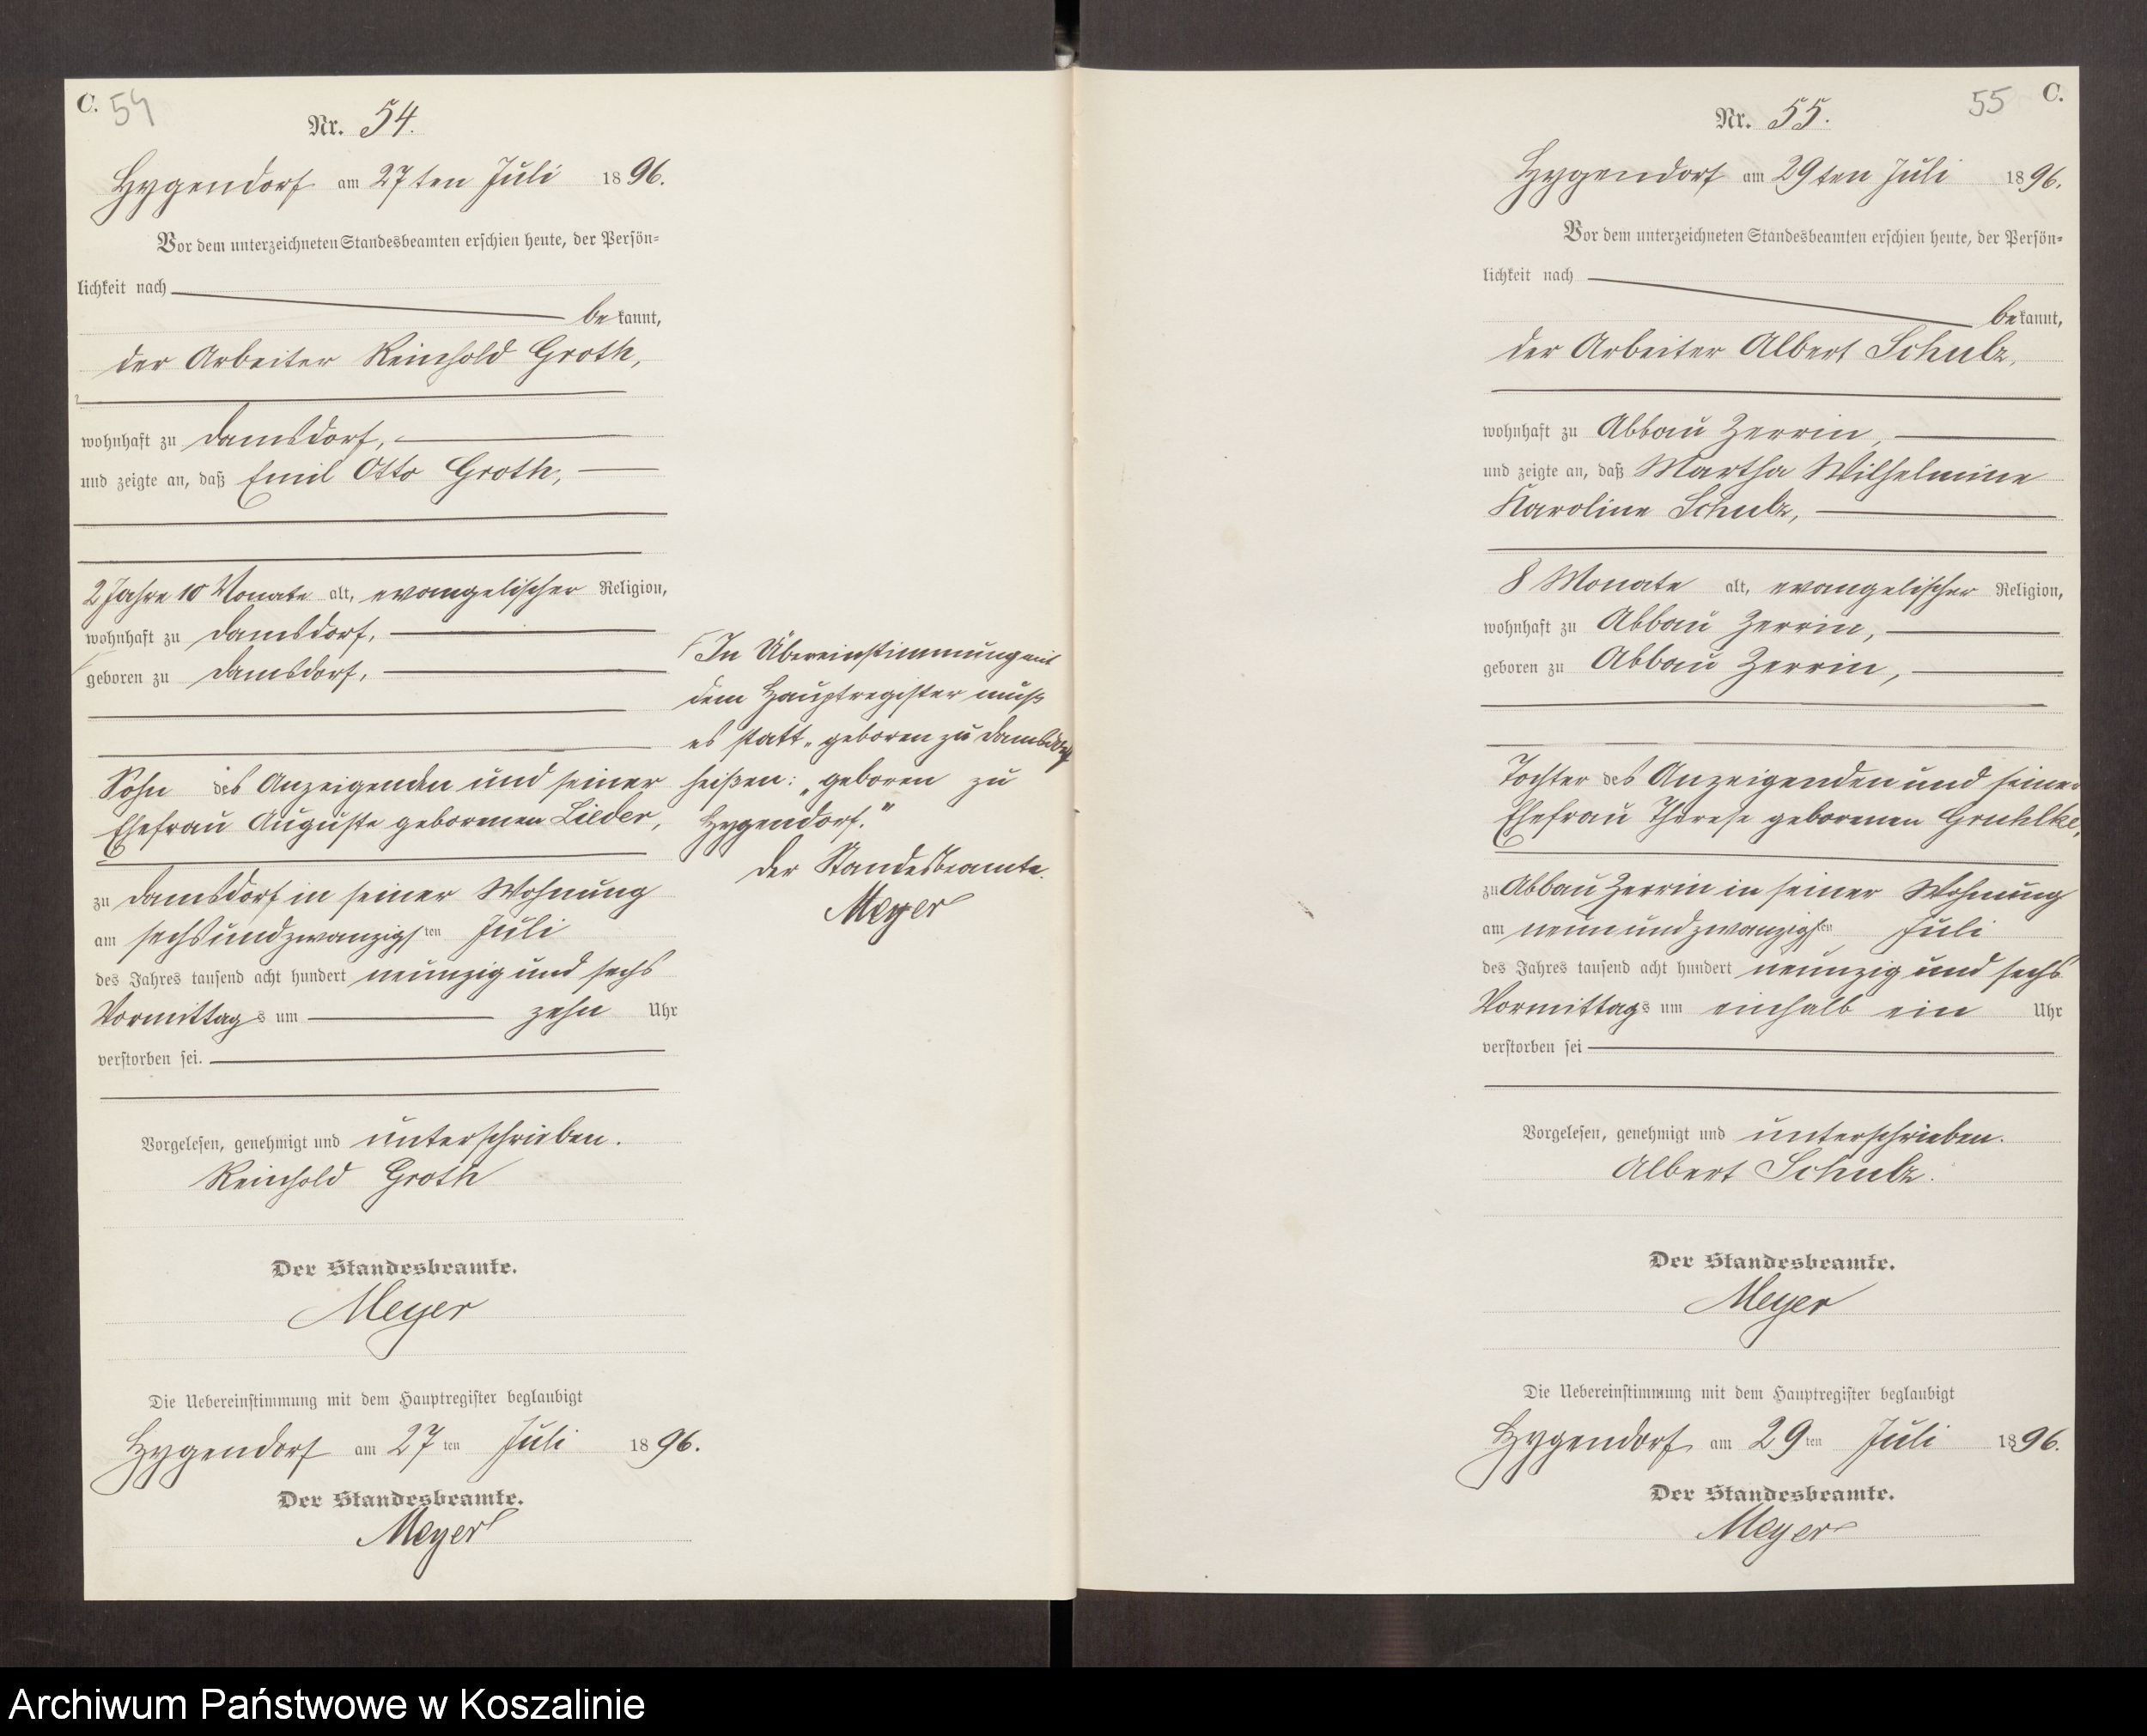 C. 54
Nr. 54.
Hygendorf am 27ten Juli 1896.
Vor dem unterzeichneten Standesbeamten erschien heute, der Persön-
lichkeit nach
bekannt,
der Arbeiter Reinhold Groth,
wohnhaft zu Damsdorf,
und zeigte an, daß Emil Otto Groth,
2 Jahre 10 Monate alt, evangelischer Religion,
wohnhaft zu Damsdorf,
geboren zu Damsdorf,
Sohn des Anzeigenden und seiner
Ehefrau Auguste geborenen Lieder,
zu Damsdorf in seiner Wohnung
am sechsundzwanzigsten Juli
des Jahres tausend acht hundert neunzig und sechs
Vormittags um zehn Uhr
verstorben sei.
Vorgelesen, genehmigt und unterschrieben.
Reinhold Groth
Der Standesbeamte.
Meyer
Die Uebereinstimmung mit dem Hauptregister beglaubigt
Hygendorf am 27ten Juli 1896.
Der Standesbeamte.
Meyer
In Übereinstimmung mit
dem Hauptregister muß
es statt „geboren zu Damsdorf
heißen: „geboren zu
Hygendorf."
Der Standesbeamte.
Meyer
55 C.
Nr. 55.
Hygendorf am 29ten Juli 1896.
Vor dem unterzeichneten Standesbeamten erschien heute, der Persön-
lichkeit nach
bekannt,
der Arbeiter Albert Schulz,
wohnhaft zu Abbau Zerrin,
und zeigte an, daß Martha Wilhelmine
Karoline Schulz,
8 Monate alt, evangelischer Religion,
wohnhaft zu Abbau Zerrin,
geboren zu Abbau Zerrin,
Tochter des Anzeigenden und seiner
Ehefrau Therese geborenen Gruhlke,
zu Abbau Zerrin in seiner Wohnung
am neunundzwanzigsten Juli
des Jahres tausend acht hundert neunzig und sechs
Vormittags um einhalb ein Uhr
verstorben sei
Vorgelesen, genehmigt und unterschrieben.
Albert Schulz.
Der Standesbeamte.
Meyer
Die Uebereinstimmung mit dem Hauptregister beglaubigt
Hygendorf am 29ten Juli 1896.
Der Standesbeamte.
Meyer
Archiwum Państwowe w Koszalinie